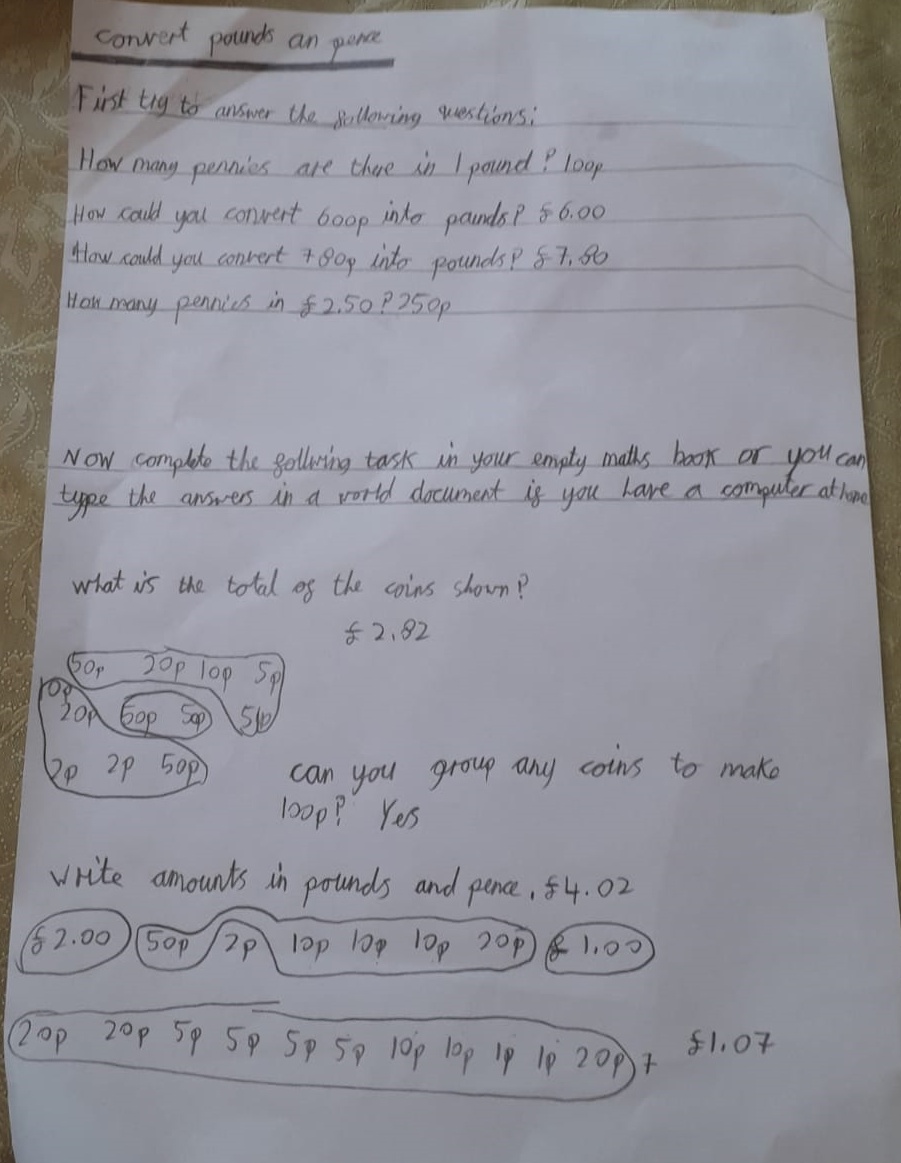 convert pounds an pence
First try to answer the following questions:
How many pennies are there in 1 pound? 100p
How could you convert 600p into pounds? £6.00
How could you convert 780p into pounds? £7.80
How many pennies in £2.50? 250p
Now complete the follwing task in your empty maths book or you can
type the answers in a world document if you have a computer at home
what is the total of the coins shown?
£2.82
50p 20p 10p 5p
10p
20p 50p 50p 5p
2p 2p 50p
can you group any coins to make
100p? Yes
write amounts in pounds and pence. £4.02
£2.00 50p 2p 10p 10p 10p 20p £1.00
20p 20p 5p 5p 5p 5p 10p 10p 1p 1p 20p 7 £1.07